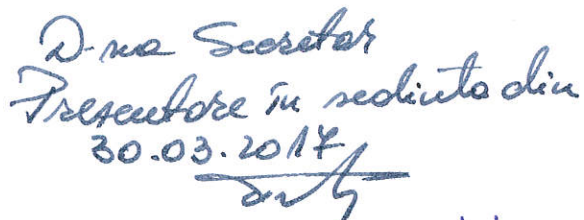 D-na Secretar
Prezentare în sedinta din
30.03.2017